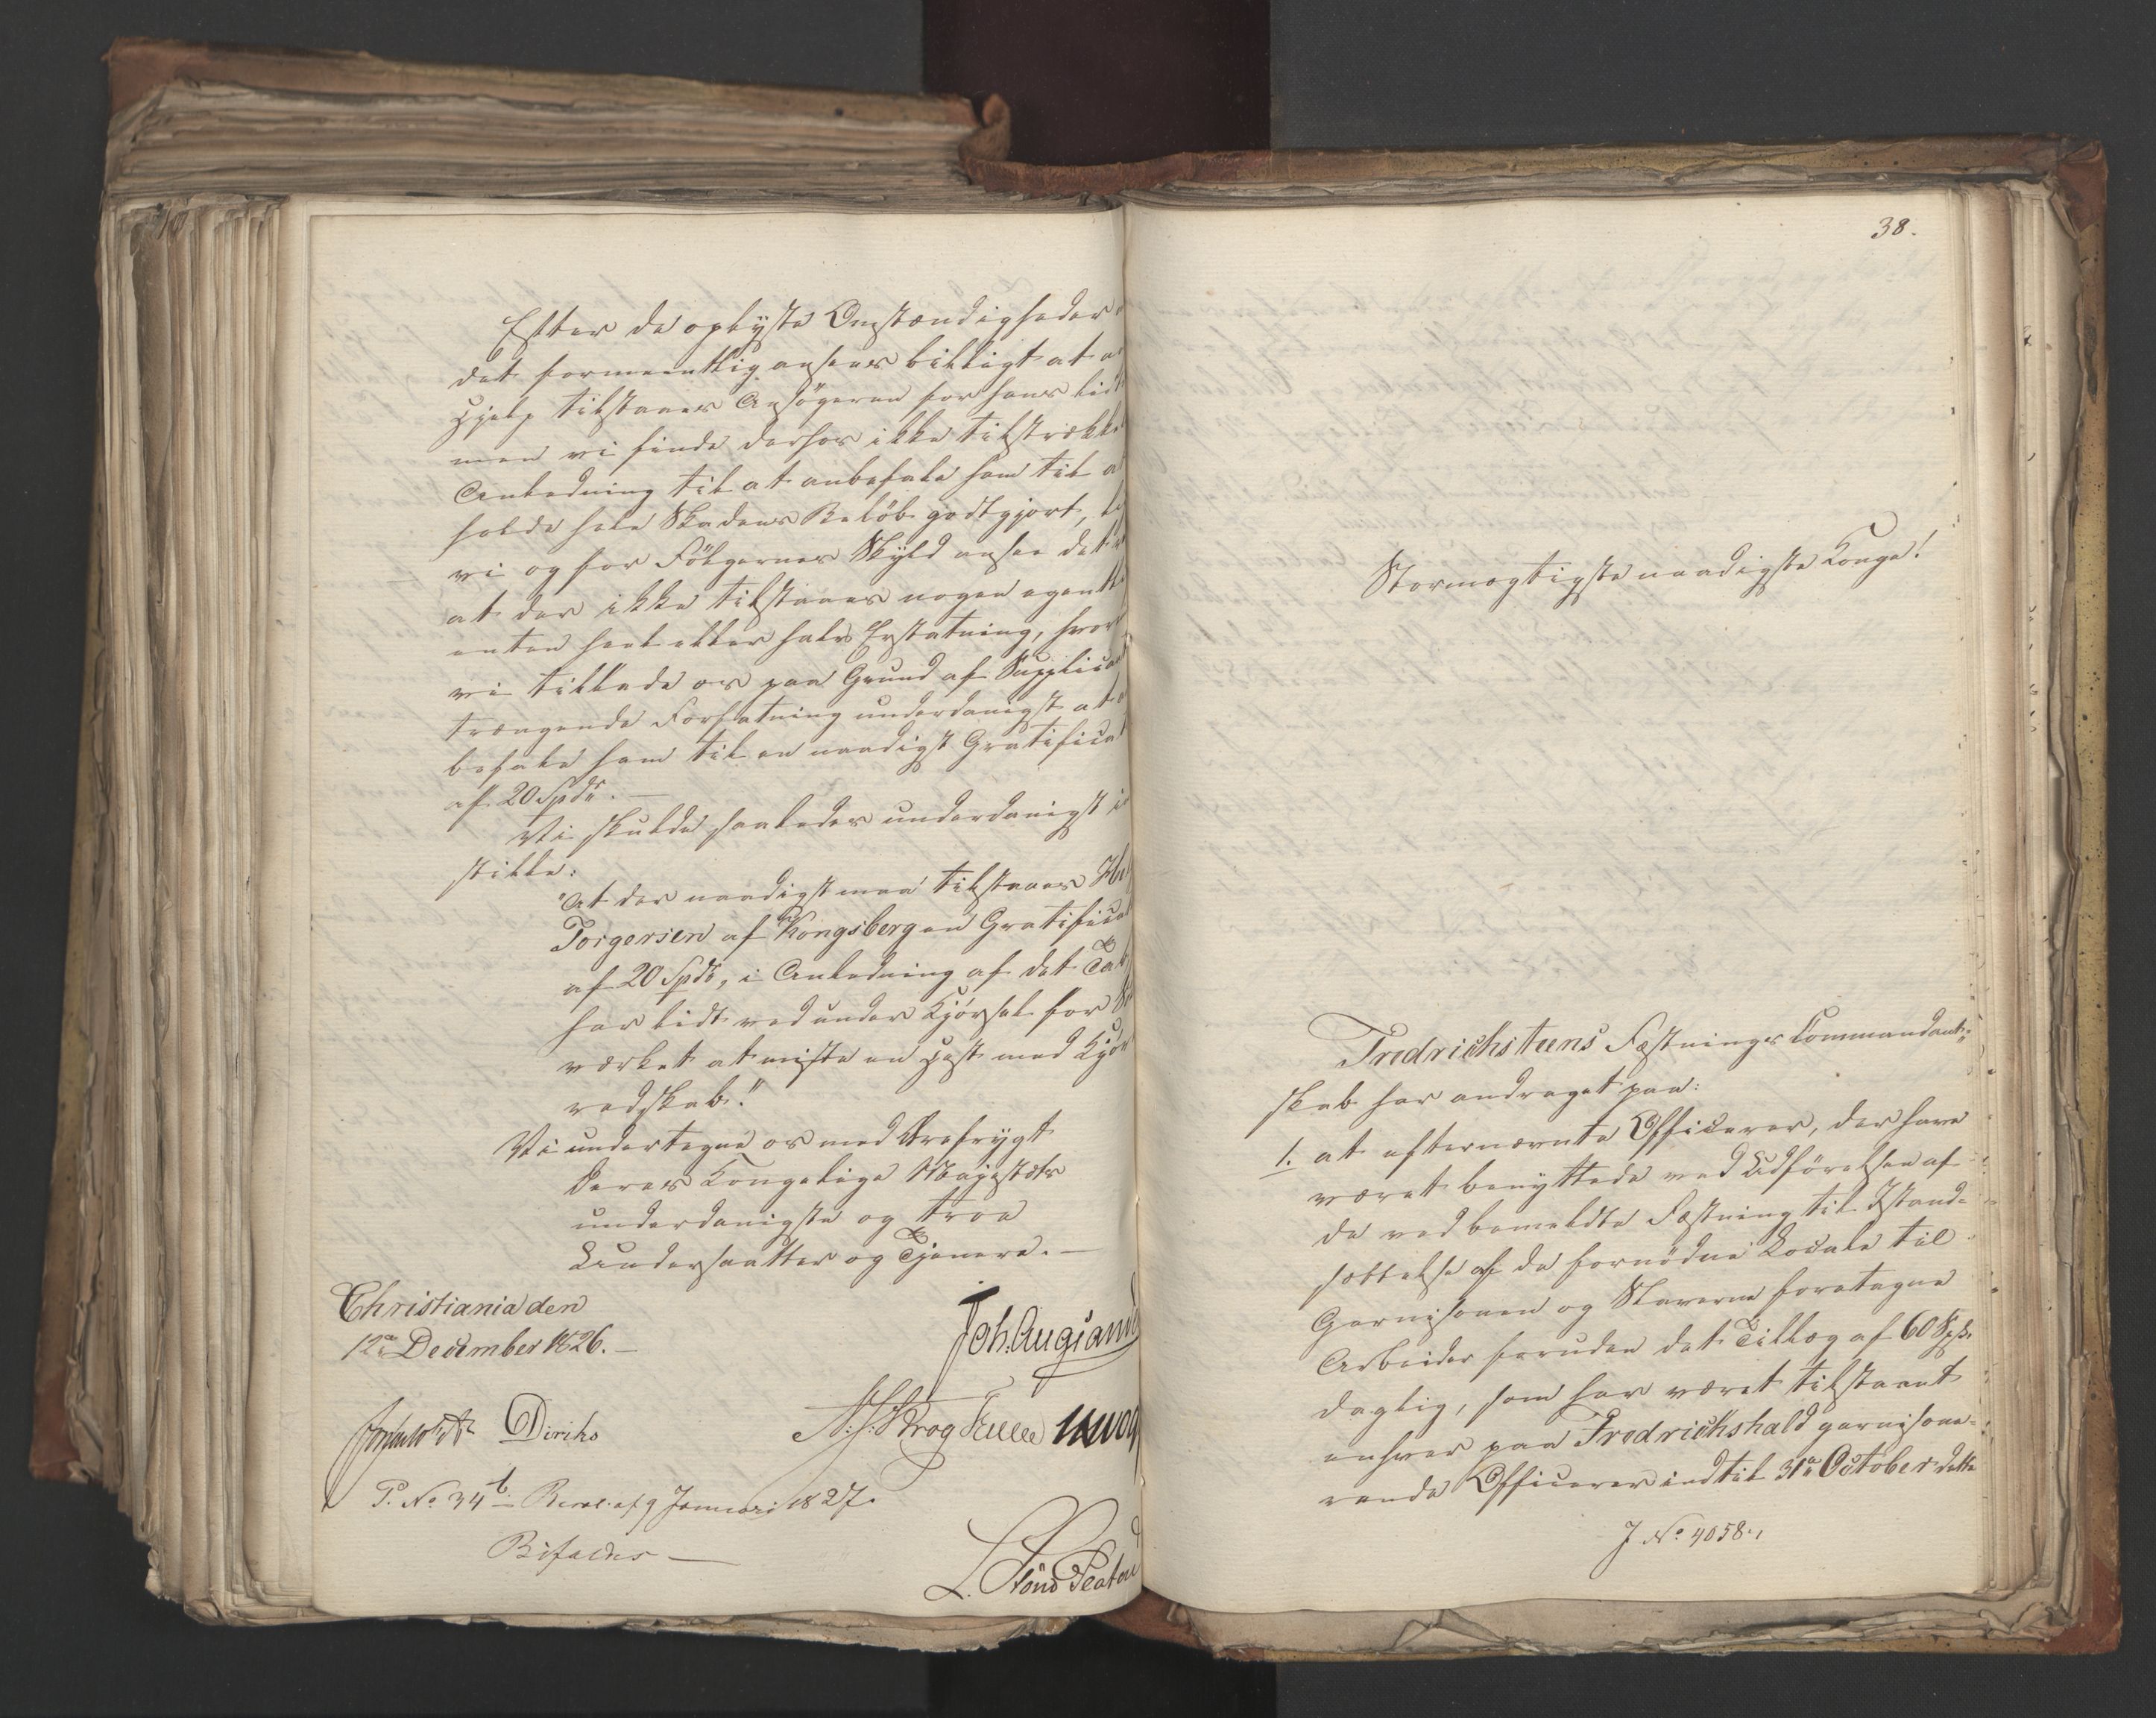 Efter de oplyste Omstændigheder
det formeentlig ansees billigt at
Hjelp tilstaaes Ansøgeren for hans lidte
men vi finde derhos ikke tilstrække
Anledning til at anbefale ham til at
holde hele Skadens Beløb godtgjort,
vi og for Følgernes Skyld ansee det
at der ikke tilstaaes nogen egentl
enten heel eller halv Erstatning, hvor
vi tillade os paa Grund af Supplican
trængende Forfatning underdanigst at
befale ham til en naadigst Gratifica
af 20 Spdr. —
Vi skulde saaledes underdanigst
stille:
"At der naadigst maa tilstaaes
Torgersen af Kongsberg en Gratifica
af 20 Spdr, i Anledning af det Tab
har lidt ved under Kjörsel for
værket at miste en Hest med Kjöre
redskab."
Vi undertegne os med Ærefrygt
Deres Kongelige Majestæts
underdanigste og troe
Undersaatter og Tjenere. —
Christiania den
12te December 1826. —
Joh. Aug Sand
Diriks
P. No 34 b. Resol. af 9 Januari 1827.
Bifaldes —
38.
Stormægtigste naadigste Konge!
Fredrichsteens Fæstnings Commandant-
skab har andraget paa:
1. at efternævnte Officerer, der have
været benyttede ved Udförelsen af
de ved bemeldte Fæstning til Istand-
sættelse af de fornødne Locale til
Garnisonen og Slaverne foretagne
Arbeider foruden det Tillæg af 60 Sk.
daglig, som har været tilstaaet
enhver paa Fredrichshald garnisone-
rende Officerer indtil 31te October dette
J No 4058.